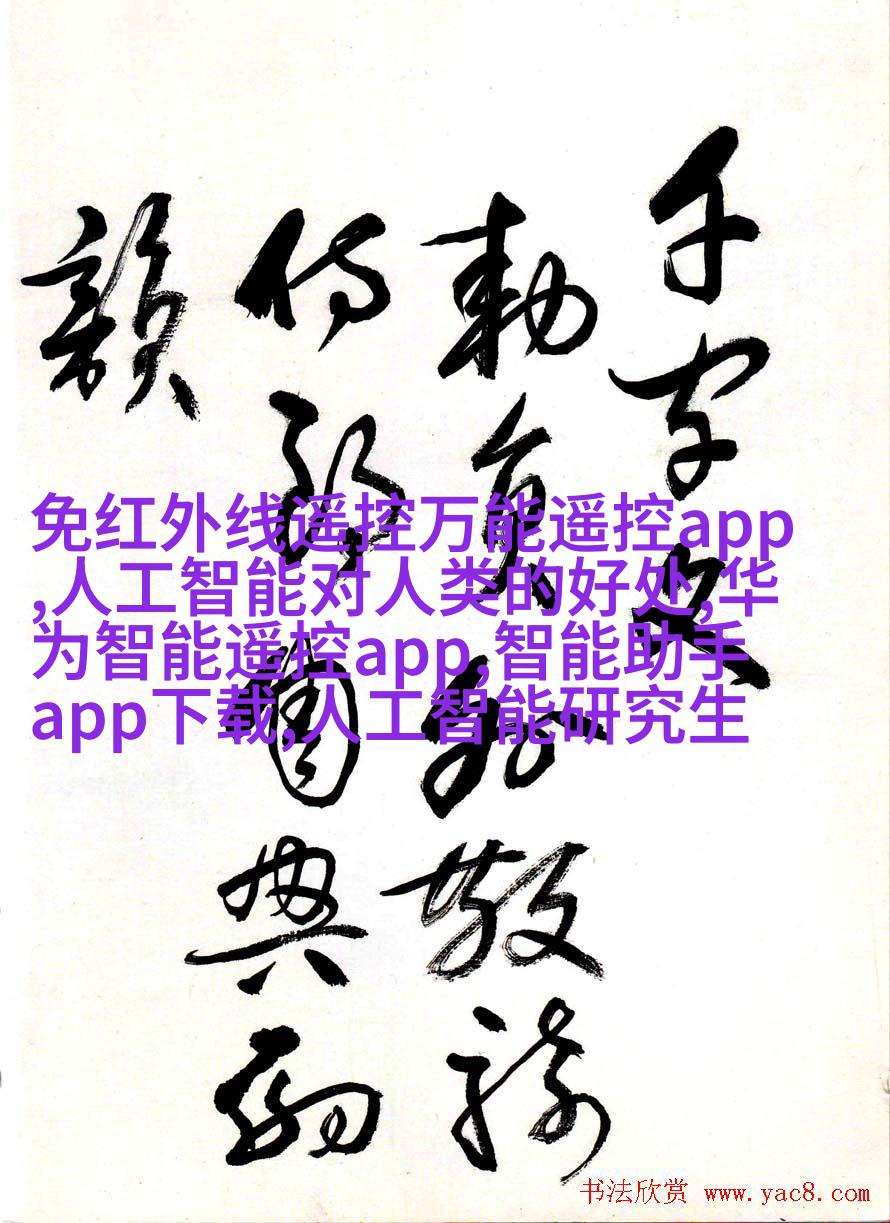 千字文
敕员外散骑
侍郎周兴嗣
韵
免红外线遥控万能遥控app
,人工智能对人类的好处,华
为智能遥控app,智能助手
app下载,人工智能研究生
书法欣赏 www.yac8.com